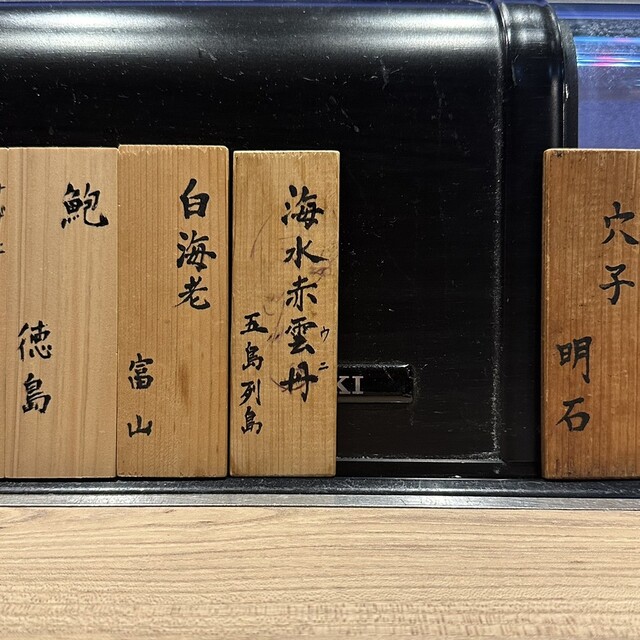 鮑
徳島
白海老
富山
海水赤雲丹
ウニ
五島列島
KI
穴子
明石